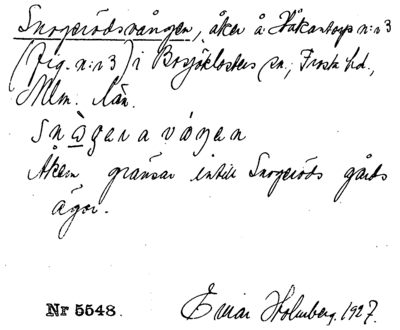 Snogerödsvången, åker å Håkantorp n:r 3
(Fig. n:r 3) i Bosjöklosters sn, Frosta hd.,
Mlm. län.
Snògeravåŋen
Åkern gränsar intill Snogeröds gårds
ägor.
Nr 5548.
Einar Holmberg. 1927.